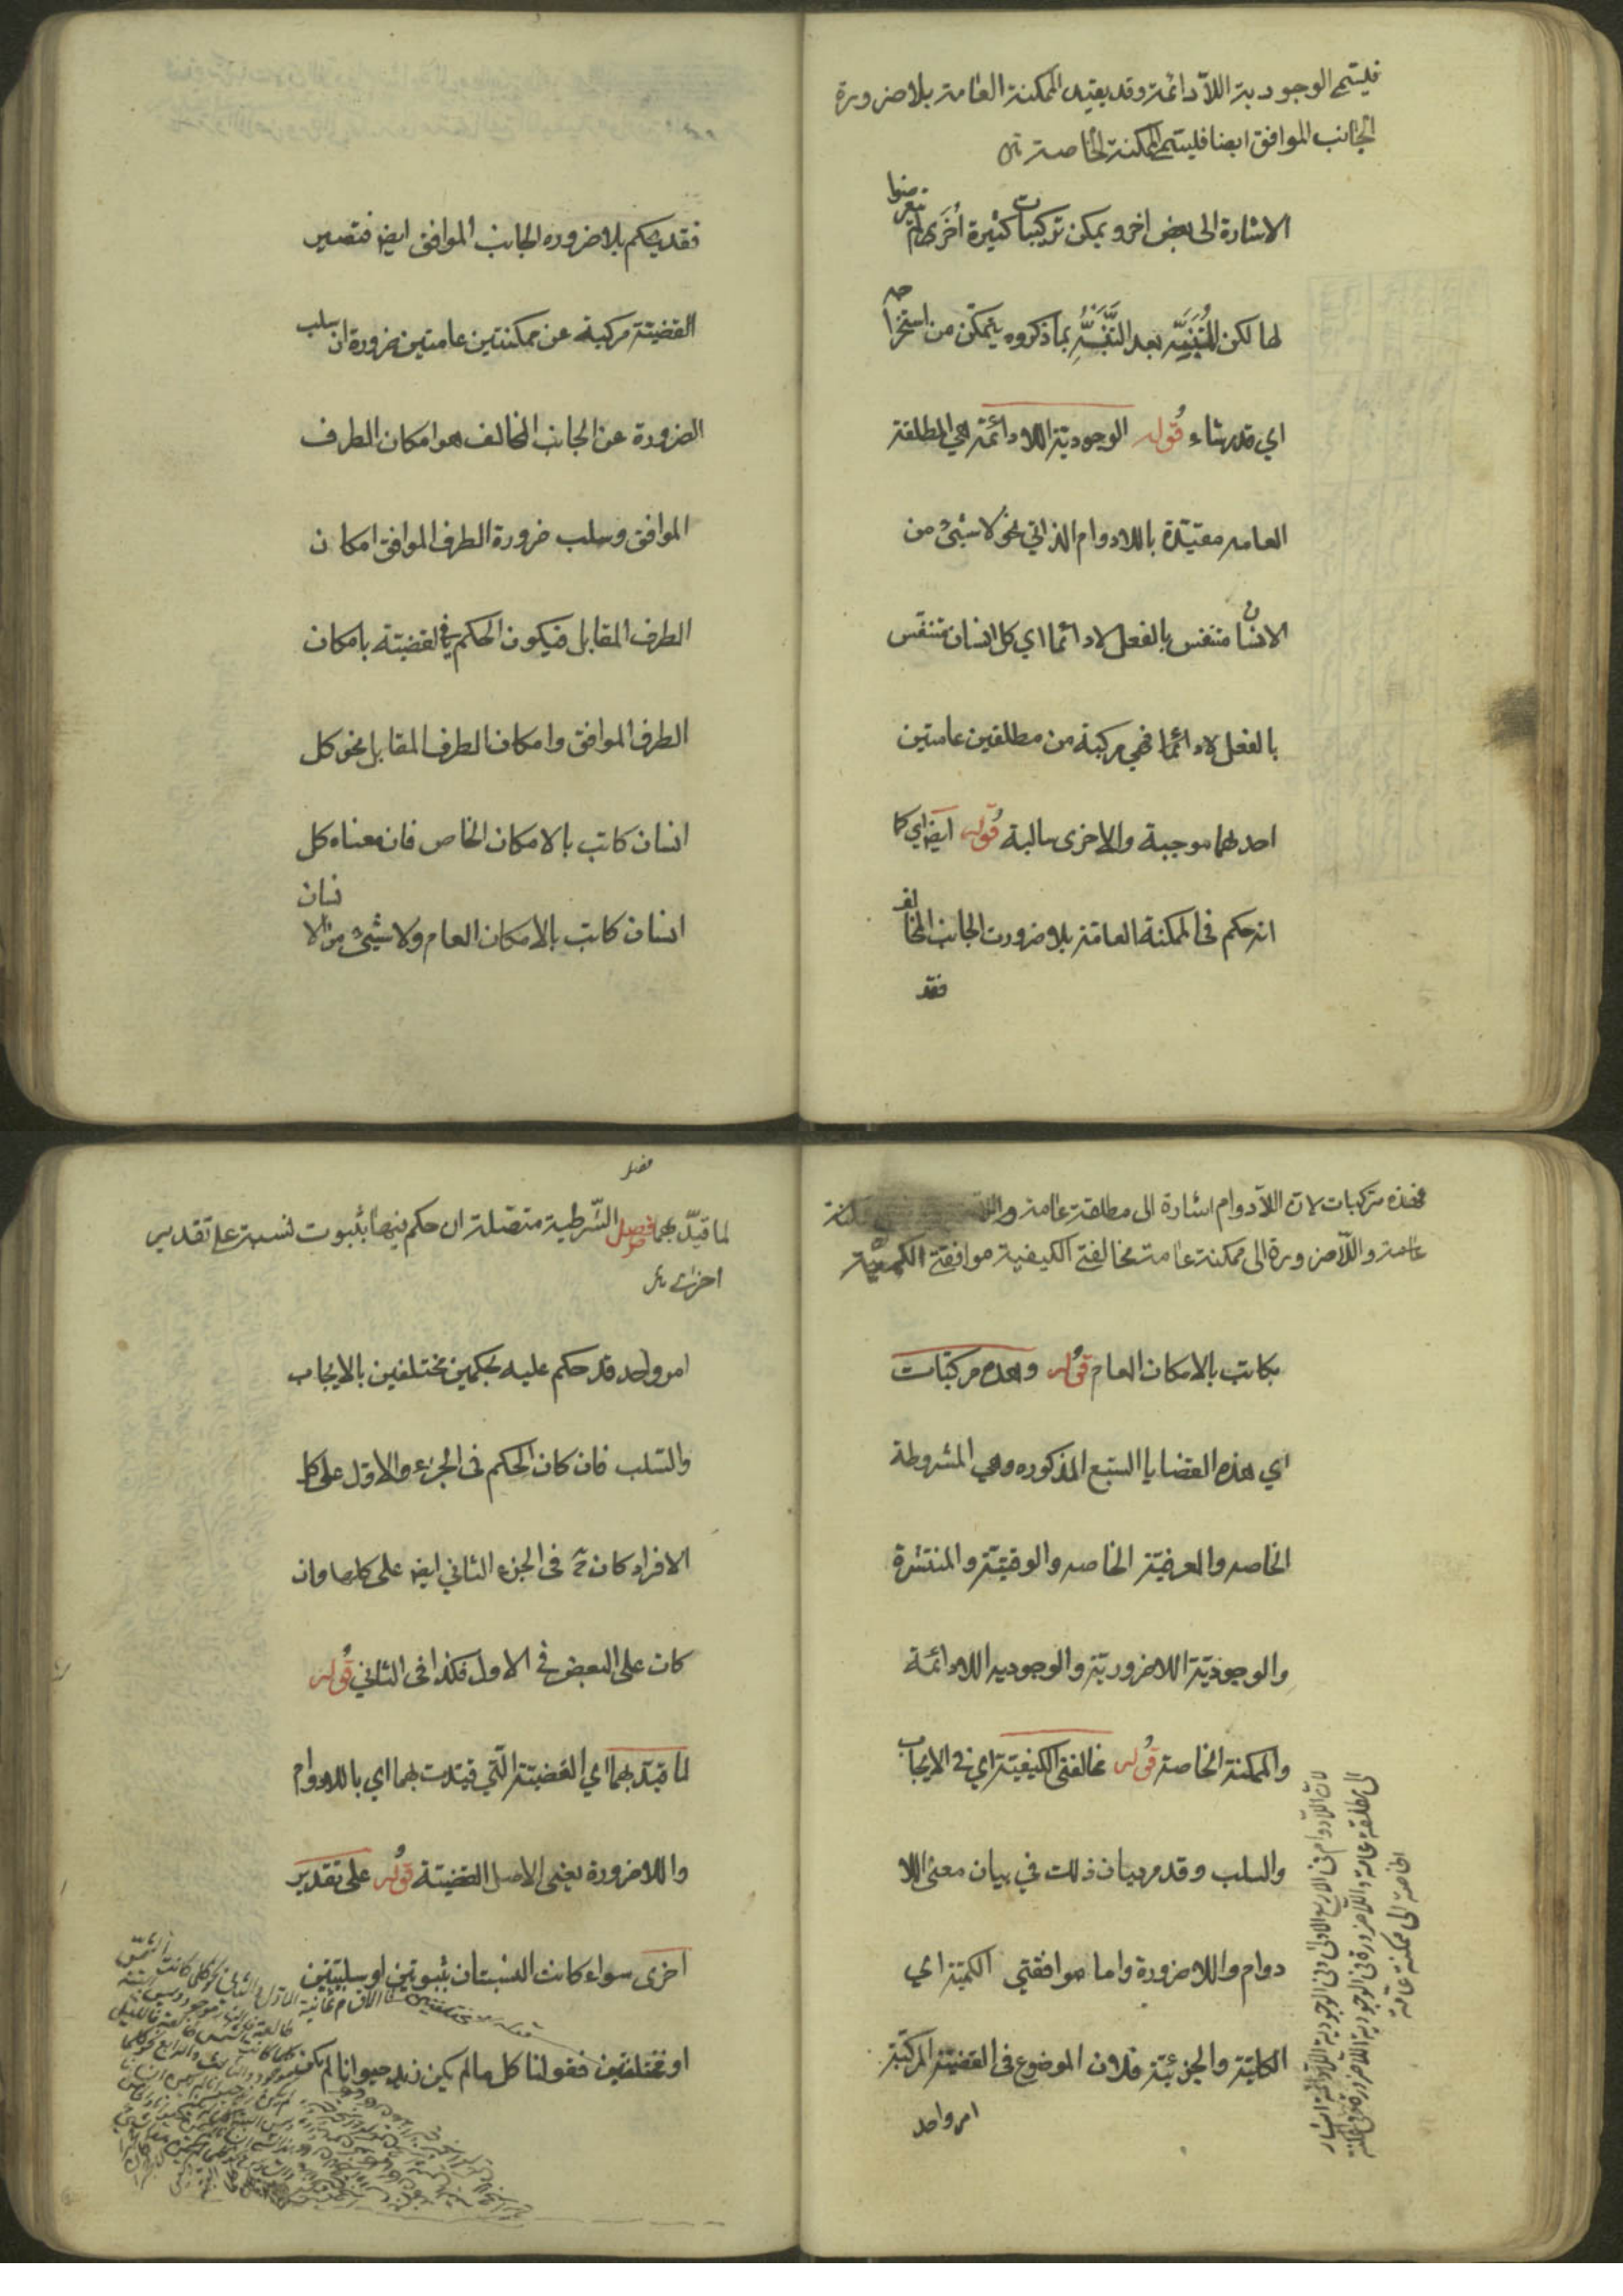 فليتمى الوجودية اللّا دائمة وقد يقيد الممكنة العامة بلا ضرورة
الجانب الموافق ايضا فليتمى الممكنة الخاصة
الاشارة الى بعض اخر ويمكن تركيبات كثيرة أخرى لم يتعرضوا
لها لكن المتنبّه بعد التنبّه بما ذكروه يتمكن من استخراجه
اي قدر شاء قوله الوجودية اللا دائمة هي المطلقة
العامه مقيّدة باللا دوام الذاتي نحو لا شيئ من
الانسان متنفس بالفعل لا دائما اي كل انسان متنفس
بالفعل لا دائما فهي مركبة من مطلقتين عامتين
احدلهما موجبة والاخرى سالبة قوله ايضا اي كما
انه حكم فى الممكنة العامة بلا ضرورت الجانب المخالف
فقد
فقد يحكم بلا ضروره الجانب الموافق ايضا فتصير
القضيّة مركبة عن ممكنتين عامتين ضرورة ان سلب
الضرورة عن الجانب المخالف هو امكان الطرف
الموافق وسلب ضرورة الطرف الموافق امكان
الطرف المقابل فيكون الحكم في القضيّة بامكان
الطرف الموافق وامكان الطرف المقابل نحو كل
انسان كاتب بالامكان الخاص فان معناه كل
انسان كاتب بالامكان العام ولا شيئ من الانسان
فهذه مركبات لان اللّادوام اشارة الى مطلقة عامة
عامة واللّا ضرورة الى ممكنة عامة مخالفتى الكيفية موافقتى الكميّة
بكاتب بالامكان العام قوله وهذه مركبّات
اي هذه القضايا السّبع المذكوره وهي المشروطة
الخاصه والعرفيّة الخاصه والوقتيّة والمنتشرة
والوجوديّة اللا ضروريّة والوجوديه اللا دائمة
والممكنة الخاصة قوله مخالفتى الكيفيّة اي في الايجاب
والسلب وقد مر بيان ذلك في بيان معنى اللا
دوام واللا ضرورة واما موافقتي الكميّة اي
الكليّة والجزئيّة فلان الموضوع فى القضيّة المركبّة
امر واحد
لان اللّا دوام فى الاربع الاولى وفى الوجودية اللّا دائمة اشارة
الى مطلقة عامة واللّا ضرورة فى الوجودية اللّا ضرورية وفى الممكنة
الخاصّة الى ممكنة عامّة
لما قيّد بهما فصل الشّرطية متصلة ان حكم فيها بثبوت نسبة على تقدير
اخرى
امر واحد قد حكم عليه بحكمين مختلفين بالايجاب
والسّلب فان كان الحكم فى الجزء الاوّل على كل
الافراد كان فى الجزء الثاني ايضا على كلها وان
كان على البعض في الاول فكذا فى الثاني قوله
لما قيّد بهما اي القضيّة الّتي قيّدت بهما اي باللا دوام
واللا ضرورة يعني الاصل القضيّة قوله على تقدير
اخرى سواء كانت النسبتان ثبوتين او سلبيتين
او مختلفتين فقولنا كل ما لم يكن زيد حيوانا لم يكن